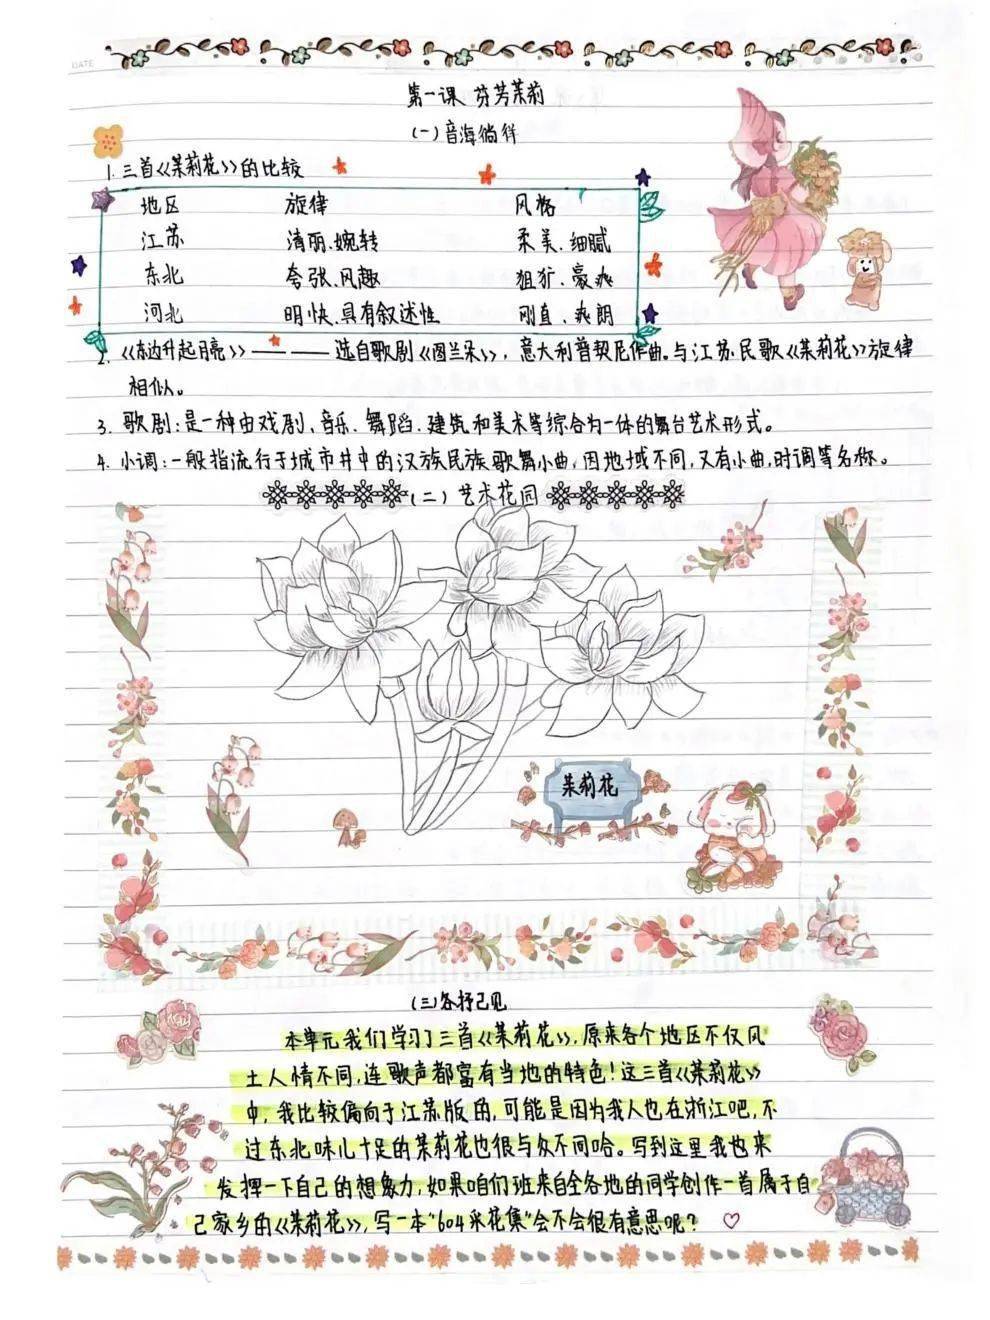 DATE
第一课 芬芳茉莉
(一)音海徜徉
1. 三首《茉莉花》的比较
地区 旋律 风格
江苏 清丽、婉转 柔美、细腻
东北 夸张、风趣 粗犷、豪爽
河北 明快、具有叙述性 刚直、爽朗
2. 《东边升起月亮》—— —— 选自歌剧《图兰朵》，意大利普契尼作曲。与江苏民歌《茉莉花》旋律
相似。
3. 歌剧：是一种由戏剧、音乐、舞蹈、建筑和美术等综合为一体的舞台艺术形式。
4. 小调：一般指流行于城市井中的汉族民族歌舞小曲，因地域不同，又有小曲，时调等名称。
(二)艺术花园
茉莉花
(三)各抒己见
本单元我们学习了三首《茉莉花》，原来各个地区不仅风
土人情不同，连歌声都富有当地的特色！这三首《茉莉花》
中，我比较偏向于江苏版的，可能是因为我人也在浙江吧，不
过东北味儿十足的茉莉花也很与众不同哈。写到这里我也来
发挥一下自己的想象力，如果咱们班来自全各地的同学创作一首属于自
己家乡的《茉莉花》，写一本“604采花集”会不会很有意思呢？